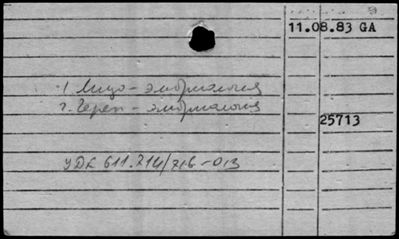 11.08.83 GA
1. Лицо - эмбриология
2. Череп - эмбриология
25713
УДК 611.714/716-013